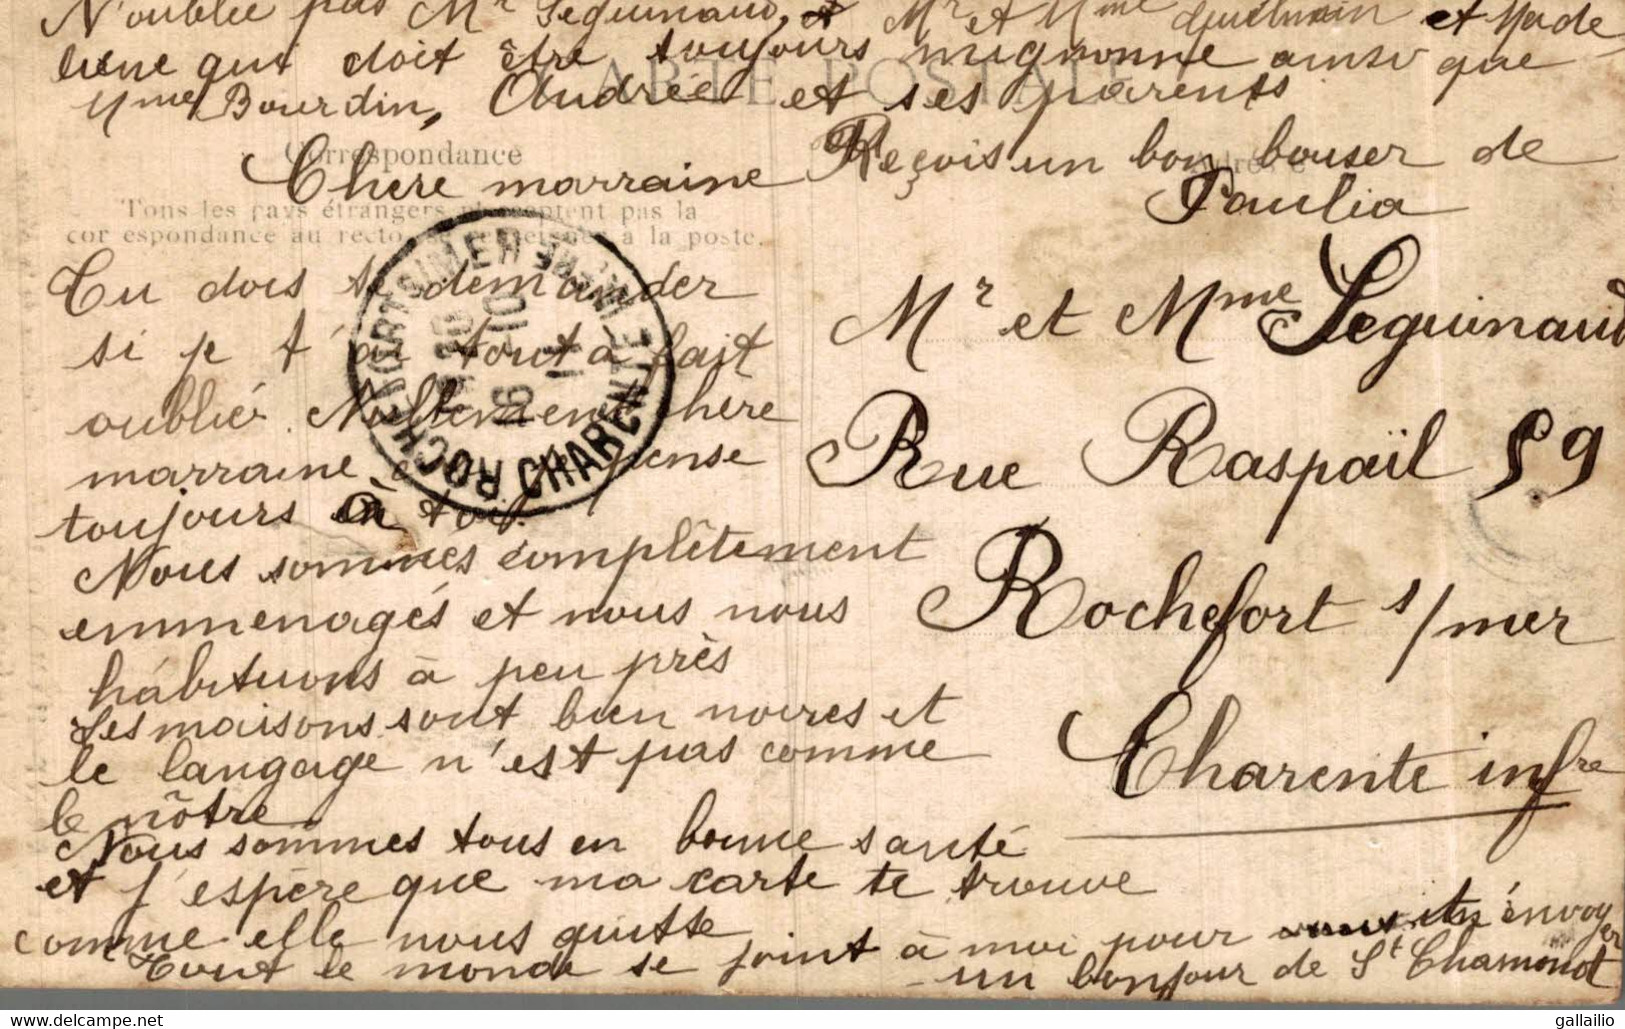 N'oublie pas Mr Seguinaud, et Mr et Mme Guilmain et Made
leine qui doit être toujours mignonne ainsi que
Mme Bourdin, Andrée et ses parents
CARTE POSTALE
Reçois un bon bouser de
Paulia
Correspondance
Chère marraine
Tous les pays étrangers n'acceptent pas la
correspondance au recto, se renseigner à la poste.
Tu dois te demander
si je t'ai tout à fait
oublié. Nullement chère
marraine, je pense
toujours à toi.
Nous sommes complètement
emmenagés et nous nous
habituons à peu près
Les maisons sont bien noires et
le langage n'est pas comme
le nôtre.
Nous sommes tous en bonne santé
et j'espère que ma carte te trouve
comme elle nous quitte
Tout le monde se joint à moi pour t'envoyer
un bonjour de St Chamond
ROCHEFORT-S-MER
CHARENTE INFRE
Mr et Mme Seguinaud
Rue Raspaïl 59
Rochefort s/mer
Charente infre
gallailio